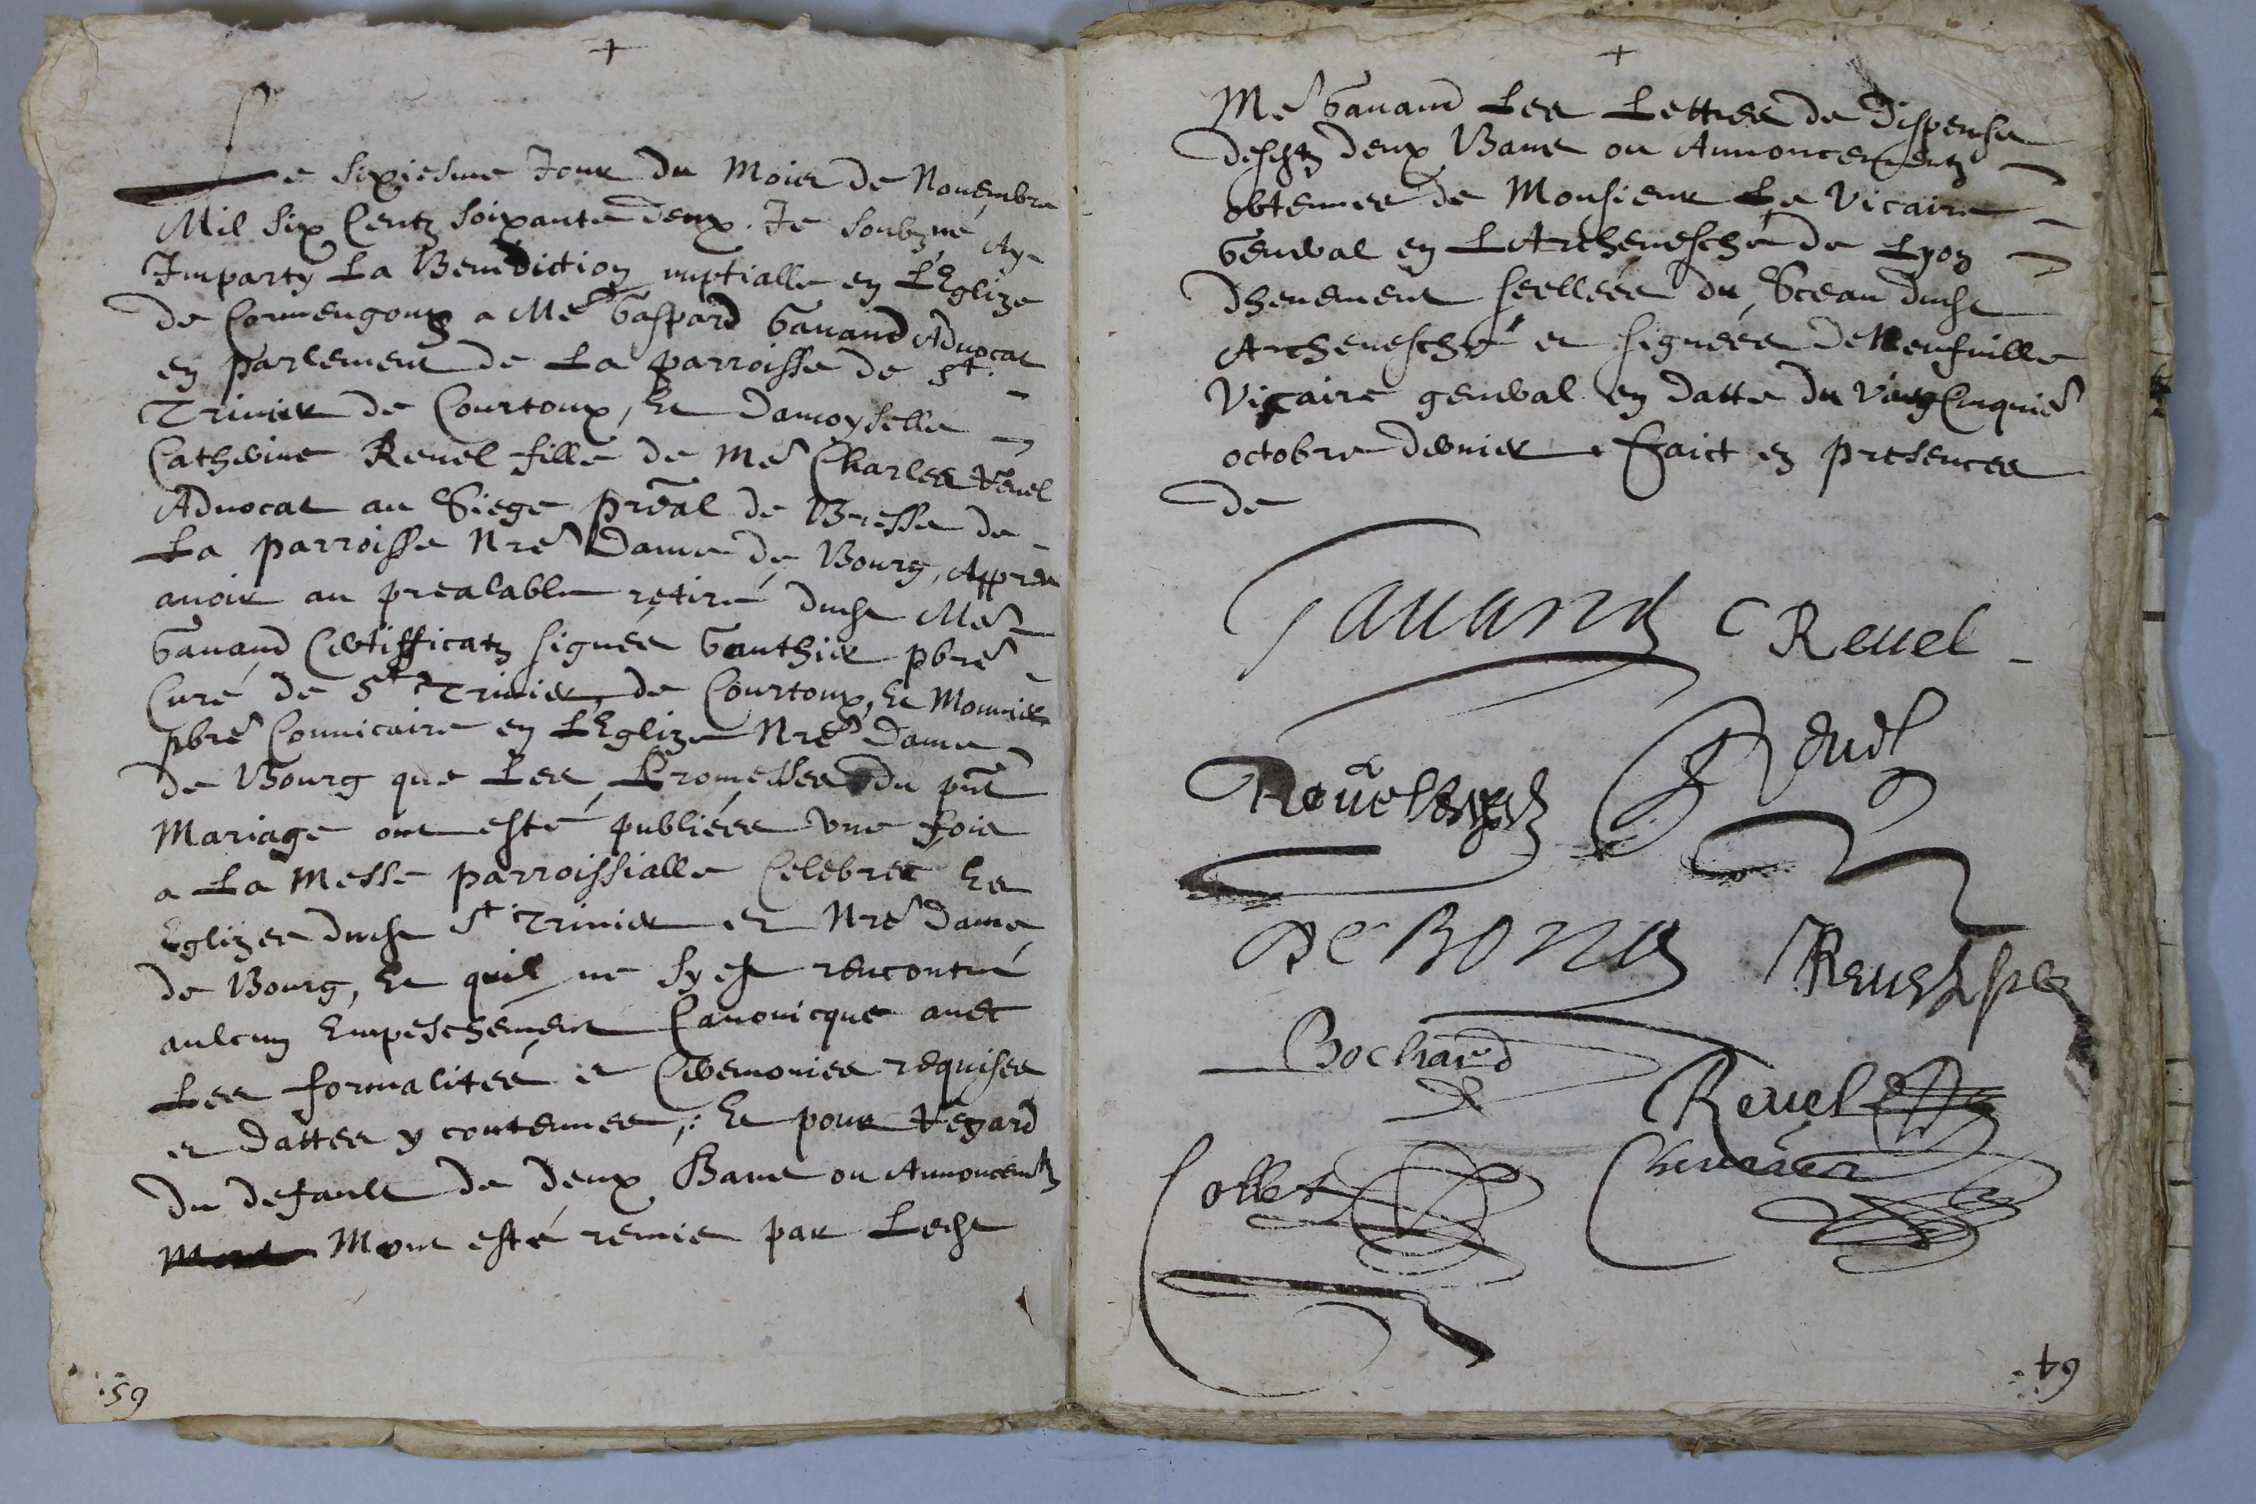 +
Le sixiesme Jour du Mois de Nouembre
Mil six Centz soixante deux. Je soubzné Ay
Imparty La Benediction nuptialle en LEglize
de Cormengoux a Me Gaspard Gauand Aduocat
en parlement de La parroisse de St.
Triuier de Courtoux, Et Damoyselle
Catherine Reuel fille de Me Charles Reuel
Aduocat au Siege préal de Bresse de
La parroisse Nre Dame de Bourg, Appres
auoir au prealable retiré dudt Me
Gauand Certifficatz signés Gauthier pbre
Curé de St Triuier de Courtoux, Et Monnier
pbre Conuicaire en LEglize Nre Dame
de Bourg que Les Promesses du pnt
Mariage ont esté publiées vne fois
a La Messe parroissialle Celebreé Es
Eglizes dudt St Triuier et Nre Dame
de Bourg, Et quil ne sy est rencontré
aulcun Empeschement Canonicque auec
Les formalités et Ceremonies requises
et dattes y contenues, Et pour Regard
du default de deux Bans ou Annoncemtz
Mont esté remis par Ledt
59
+
Me Gauand Les Lettres de dispense
desdtz deux Bans ou Annoncementz
obtenues de Monsieur Le Vicaire
General en LArcheuesché de Lyon
dheuement seellées du Sceau dudt
Archeuesché et signées de Neufuille
Vicaire general en datte du Vingt Cinquie
octobre dernier. Faict en presences
de
Gauand C Reuel
Reuel Reuel
De Bona Reuel
Bochard
Reuel
Collet Cheurier